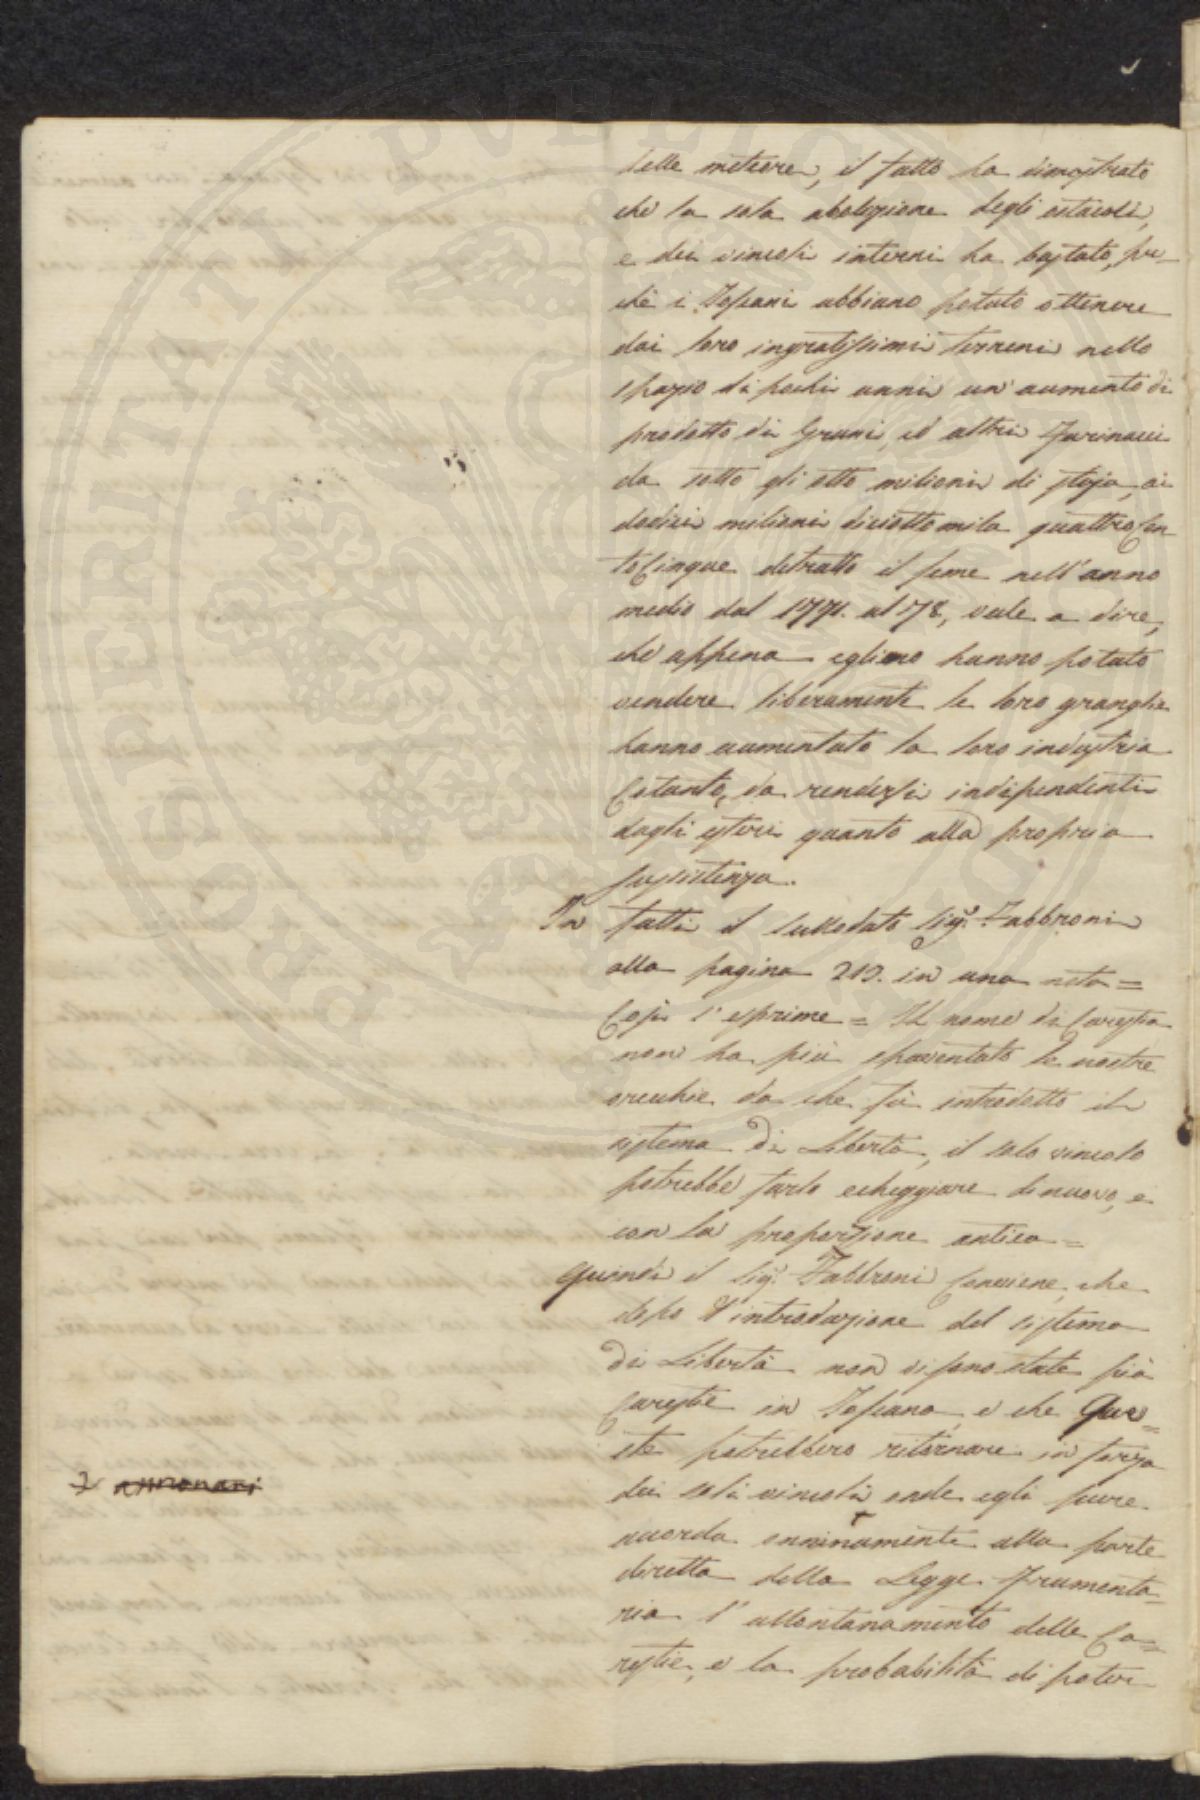 delle meteore, il fatto ha dimostrato
che la sola abolizione degli ostacoli,
e dei vincoli interni ha bastato, per-
chè i Toscani abbiano potuto ottenere
dai loro ingratissimi terreni nello
spazio di pochi anni un'aumento di
prodotto di Grani, ed altri Farinacei
da sotto gli otto milioni di staja, ai
dodici milioni diciottomila quattrocen
tocinque detratto il seme nell'anno
medio dal 1771. al 78, vale a dire,
che appena eglino hanno potuto
vendere liberamente le loro granaglie
hanno aumentato la loro industria
cotanto, da rendersi indipendenti
dagli esteri quanto alla propria
sussistenza.
In fatti il sullodato Sig.r Fabbroni
alla pagina 212. in una nota =
Così s'esprime = Il nome di Carestia
non ha più spaventato le nostre
orecchie da che fù introdotto il
sistema di Libertà, il solo vincolo
potrebbe farlo echeggiare di nuovo, e
con la proporzione antica =
Quindi il Sig.r Fabbroni conviene, che
dopo l'introduzione del sistema
di Libertà non vi sono state più
carestie in Toscana, e che Que=
ste potrebbero ritornare in forza
dei soli vincoli onde egli pure
accorda onninamente alla parte
diretta della Legge Frumenta=
ria l'allontanamento delle Ca=
restie, e la probabilità di poter
annonari